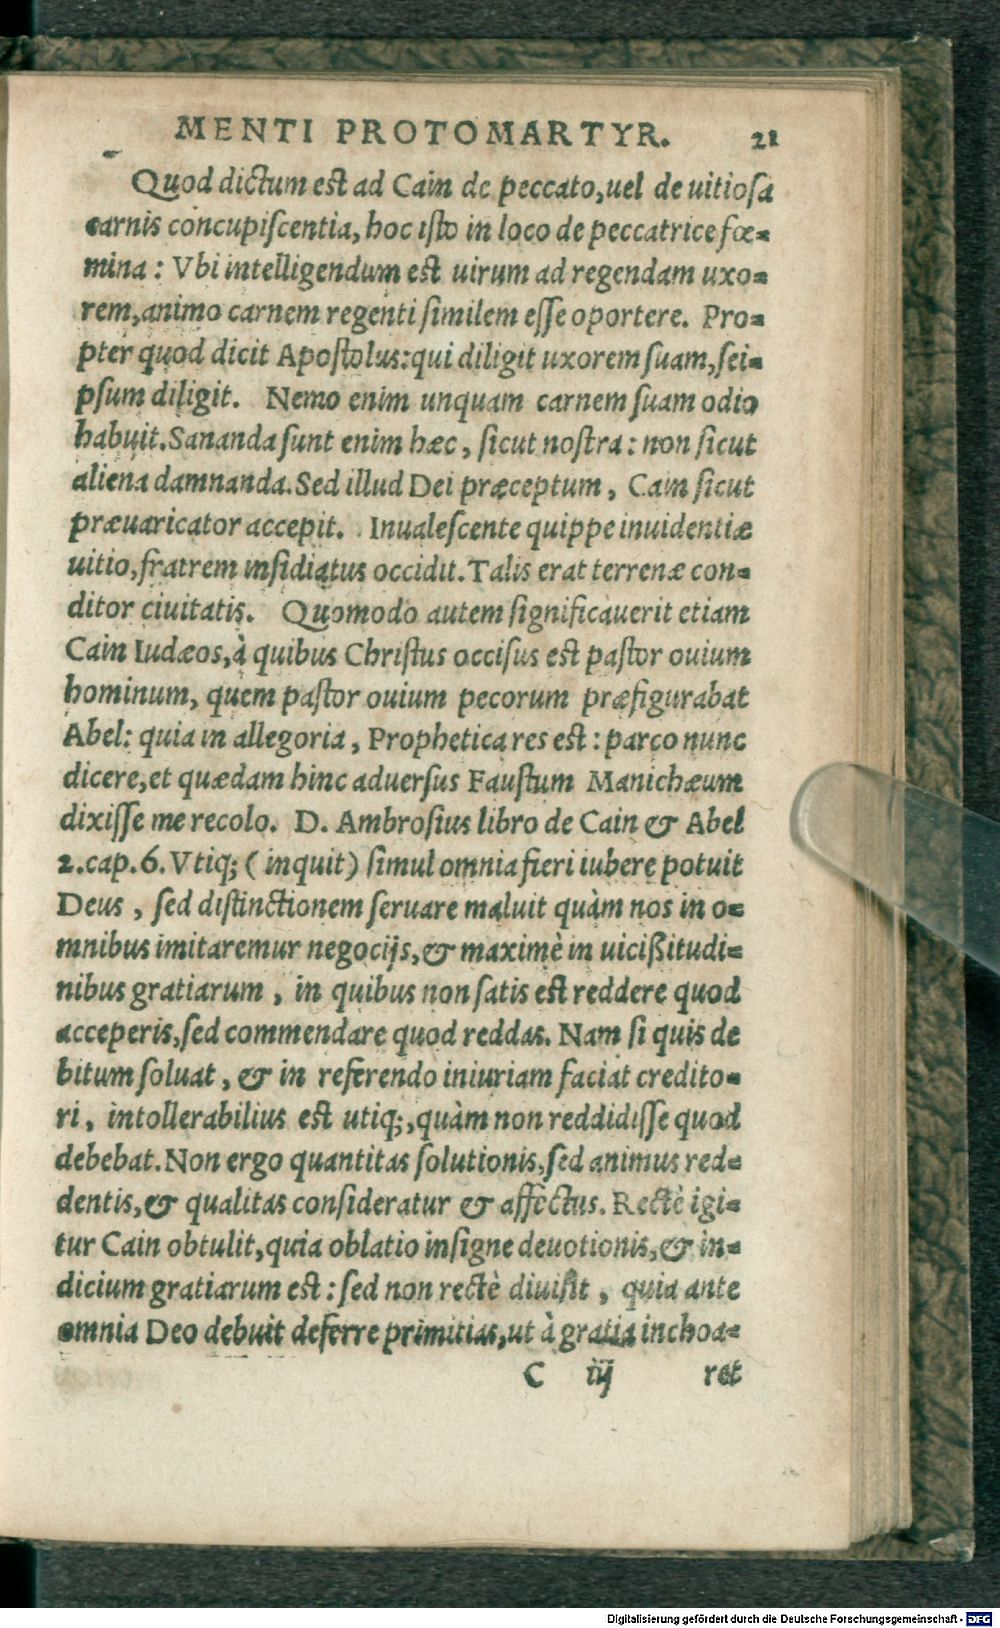 MENTI PROTOMARTYR. 21
Quod dictum est ad Cain de peccato, uel de uitiosa
carnis concupiſcentia, hoc isto in loco de peccatrice fœ=
mina: Vbi intelligendum est uirum ad regendam uxo=
rem, animo carnem regenti ſimilem eſſe oportere. Pro=
pter quod dicit Apoſtolus: qui diligit uxorem ſuam, ſei=
pſum diligit. Nemo enim unquam carnem ſuam odio
habuit. Sananda ſunt enim hæc, ſicut noſtra: non ſicut
aliena damnanda. Sed illud Dei præceptum, Cain ſicut
præuaricator accepit. Inualeſcente quippe inuidentiæ
uitio, fratrem inſidiatus occidit. Talis erat terrenæ con=
ditor ciuitatis. Quomodo autem ſignificauerit etiam
Cain Iudæos, à quibus Chriſtus occiſus est paſtor ouium
hominum, quem paſtor ouium pecorum præfigurabat
Abel: quia in allegoria, Prophetica res est: parco nunc
dicere, et quædam hinc aduerſus Fauſtum Manichæum
dixiſſe me recolo. D. Ambroſius libro de Cain & Abel
2. cap. 6. Vtiq; (inquit) ſimul omnia fieri iubere potuit
Deus, ſed diſtinctionem ſeruare maluit quàm nos in o=
mnibus imitaremur negocijs, & maximè in uicißitudi=
nibus gratiarum, in quibus non ſatis est reddere quod
acceperis, ſed commendare quod reddas. Nam ſi quis de
bitum ſoluat, & in referendo iniuriam faciat credito=
ri, intollerabilius est utiq;, quàm non reddidiſſe quod
debebat. Non ergo quantitas ſolutionis, ſed animus red=
dentis, & qualitas conſideratur & affectus. Rectè igi=
tur Cain obtulit, quia oblatio inſigne deuotionis, & in=
dicium gratiarum est: ſed non rectè diuiſit, quia ante
omnia Deo debuit deferre primitias, ut à gratia inchoa=
C iij ret
Digitalisierung gefördert durch die Deutsche Forschungsgemeinschaft - DFG